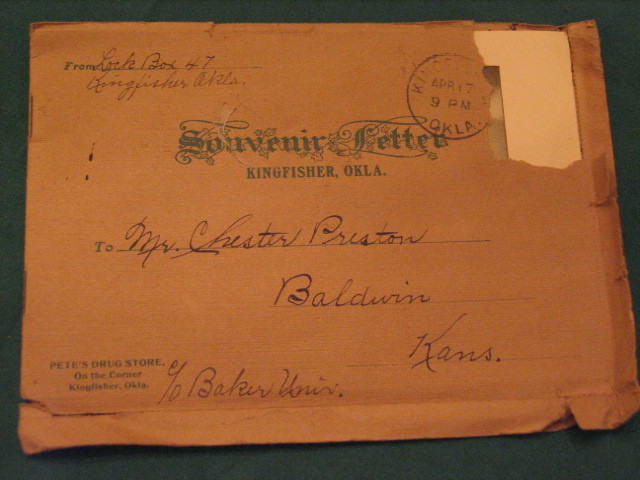 From Lock Box 47
Kingfisher Okla.
APR 17
9 PM
OKLA.
Souvenir Letter
KINGFISHER, OKLA.
To Mr. Chester Preston
Baldwin
Kans.
PETE'S DRUG STORE,
On the Corner
Kingfisher, Okla.
c/o Baker Univ.